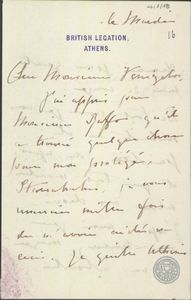 le Mardi
16
BRITISH LEGATION,
ATHENS.
Cher Monsieur Venizelos,
J'ai appris par
Monsieur qu'il
a trouvé quelque chose
pour mon protégé,
je vous
remercie mille fois
de m'avoir aidé en
ceci. Je quitte Athènes